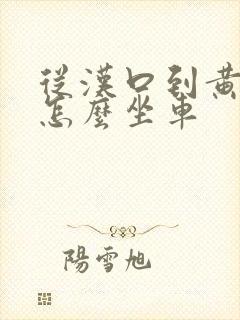 從漢口到黃
怎麼坐車
陽雪旭